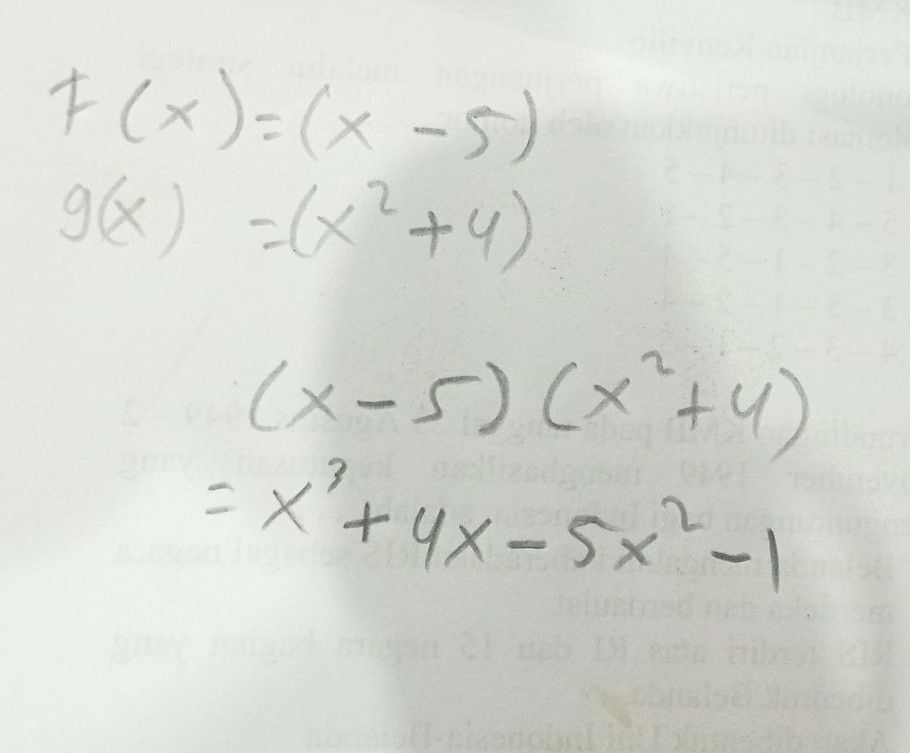 f(x)=(x-5)
g(x) =(x²+4)
(x-5)(x²+4)
= x³+4x-5x²-1